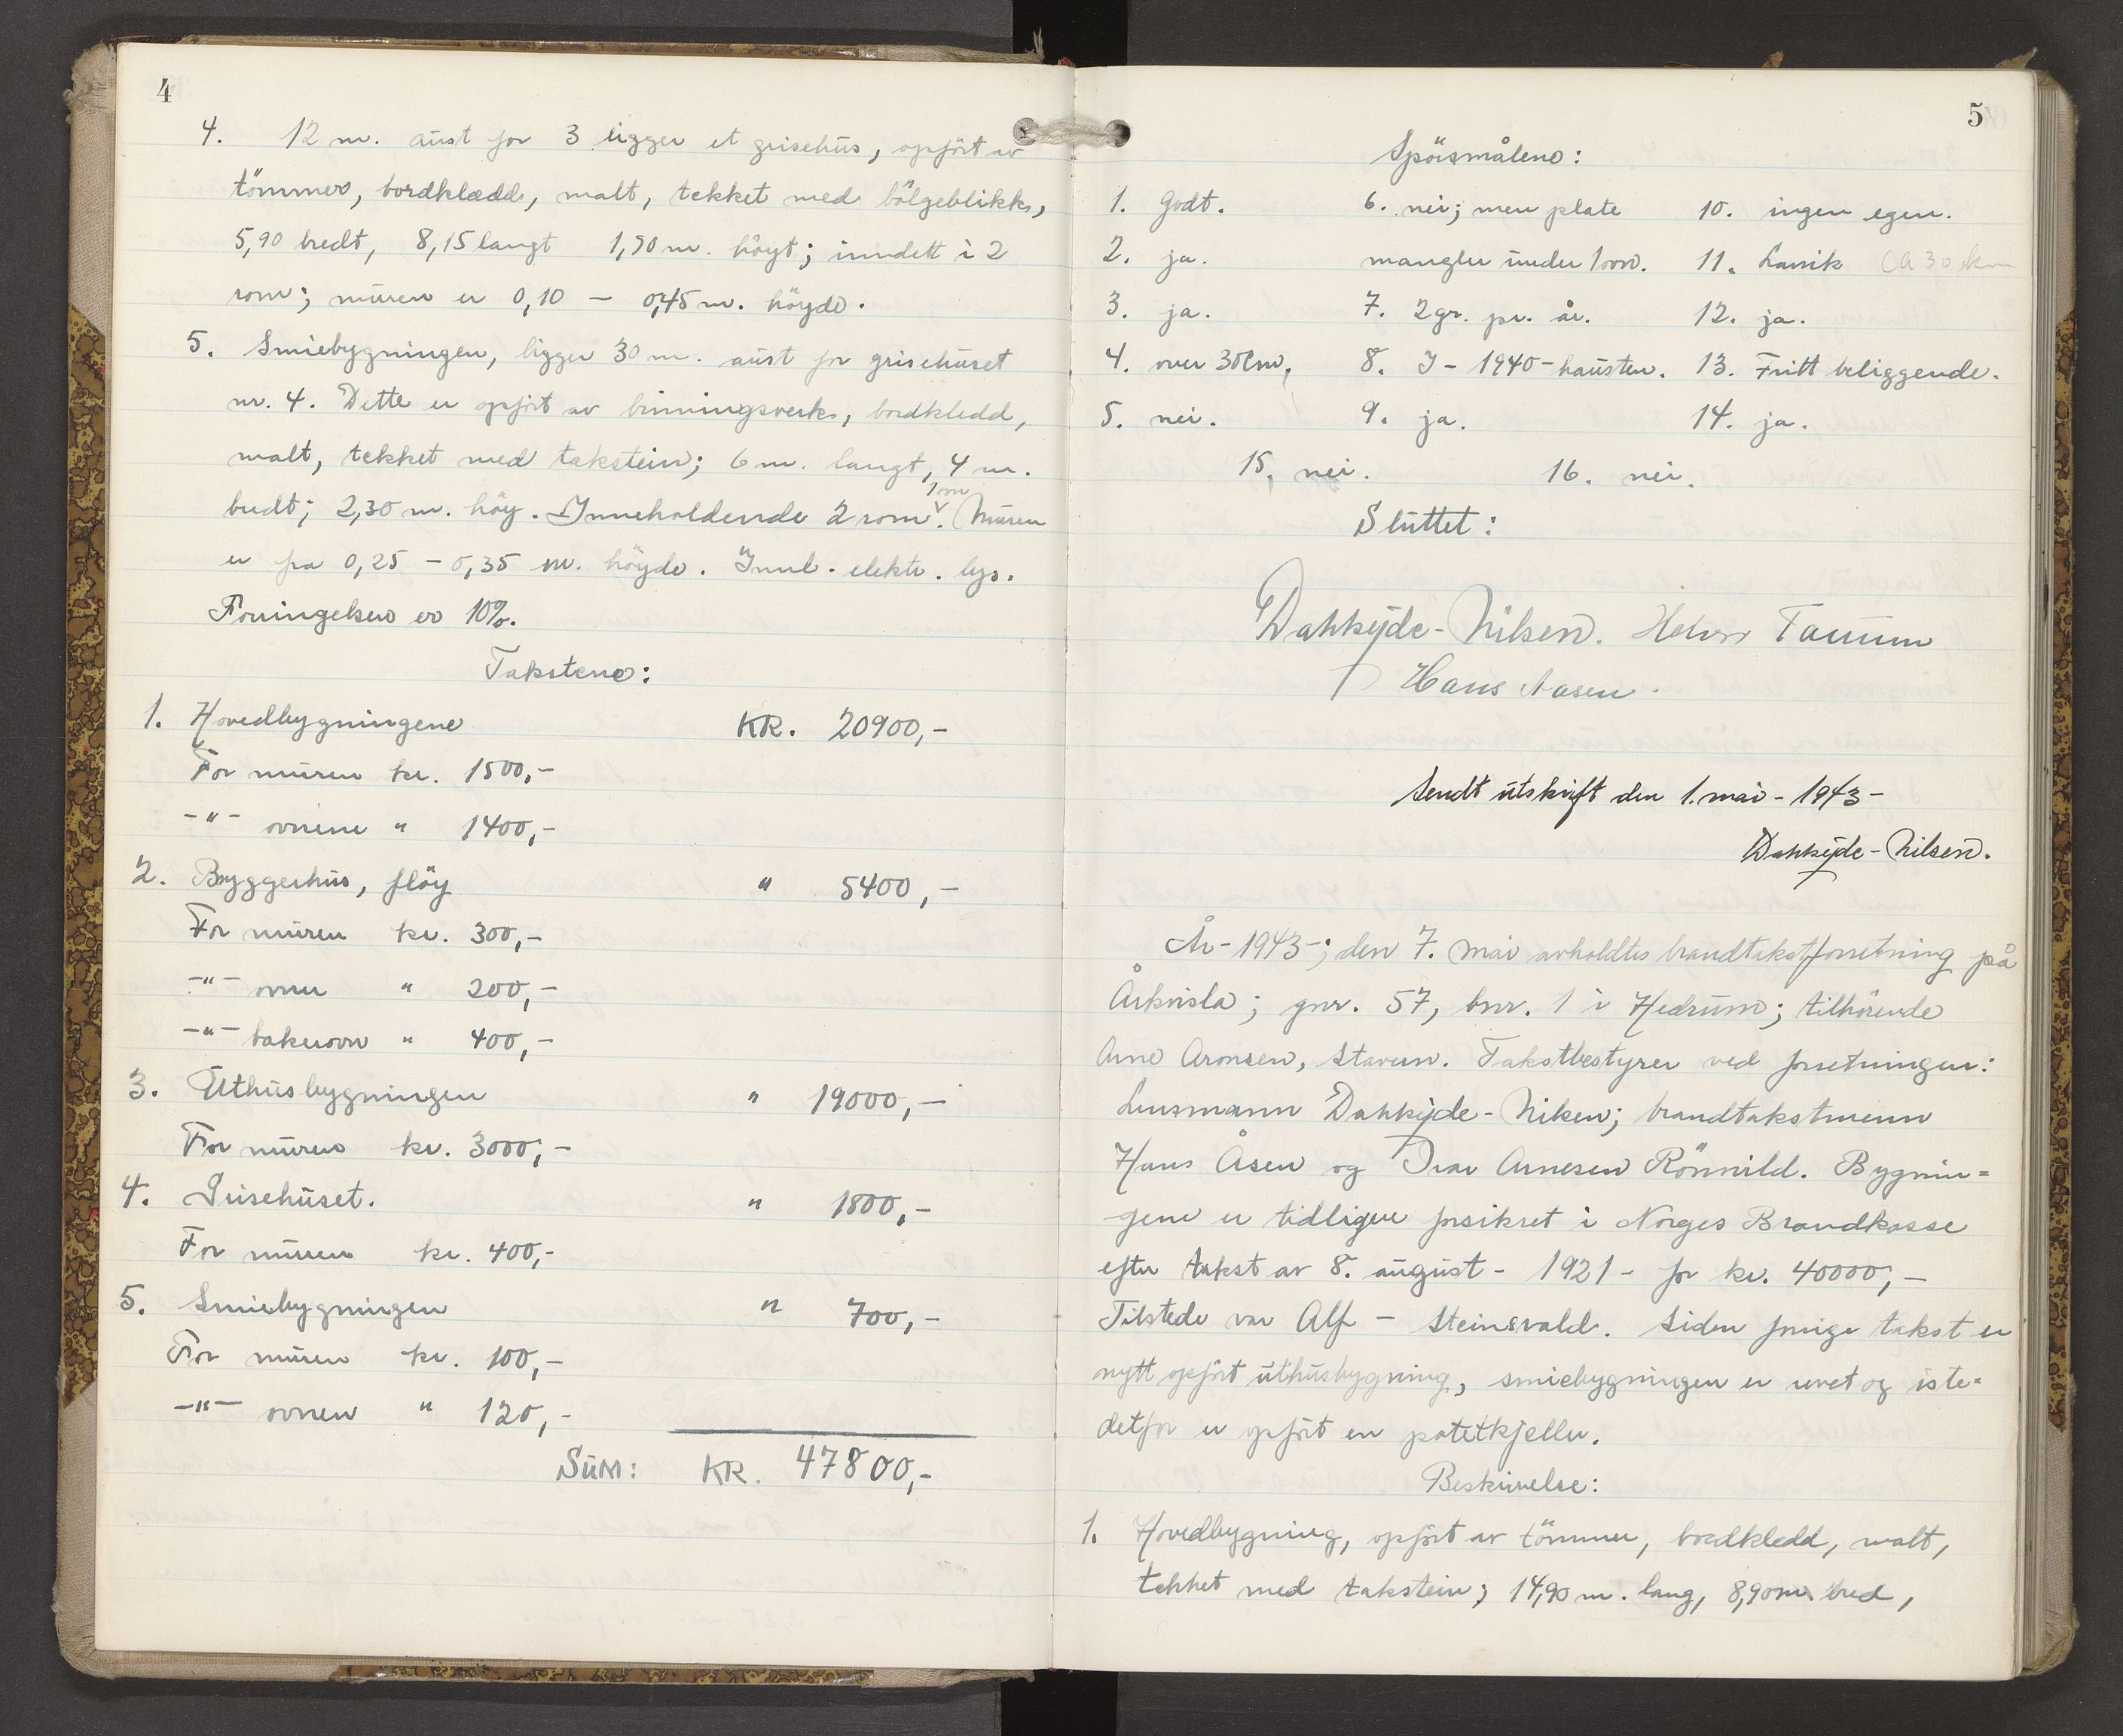 4
4. 12 m. aust for 3 ligger et grisehus, opført av
tömmer, bordkledd, malt, tekket med bölgeblikk,
5,90 bredt, 8,15 langt 1,90 m. höyt; inndelt i 2
rom; muren er 0,10 – 0,45 m. höyde.
5. Smiebygningen, ligger 30 m. aust for grisehuset
nr. 4. Dette er opfört av binningsverk, bordkledd,
malt, tekket med takstein; 6 m. langt, 4 m.
bredt; 2,30 m. höy. Inneholdende 2 rom 1 ovn. Muren
er fra 0,25 – 0,35 m. höyde. Innl. elektr. lys.
Forringelsen er 10%.
Takstene:
1. Hovedbygningene KR. 20900,-
For muren kr. 1500,-
-"- ovnene " 1400,-
2. Bryggerhus, flöy " 5400,-
For muren kr. 300,-
-"- ovnen " 200,-
-"- bakerovn " 400,-
3. Uthusbygningen " 19000,-
For muren kr. 3000,-
4. Grisehuset. " 1800,-
For muren kr. 400,-
5. Smiebygningen " 700,-
For muren kr. 100,-
-"- ovnen " 120,-
SUM: KR. 47800,-
5
Spörsmålene:
1. Godt. 6. nei; men plate 10. ingen egen.
2. ja. mangler under 1 ovn. 11. Larvik ca 30 km
3. ja. 7. 2 gr. pr. år. 12. ja.
4. over 30 cm. 8. I - 1940 - hausten. 13. Fritt beliggende.
5. nei. 9. ja. 14. ja.
15. nei. 16. nei.
Sluttet:
Dahkijde-Nilsen. Tauum
Hans Aasen.
Sendt utskrift den 1. mai - 1943 -
Dahkijde-Nilsen.
År - 1943 -; den 7. mai avholdtes brandtakstforretning på
Askvisla; gnr. 57, bnr. 1 i Hedrum; tilhörende
Arne Aronsen, Stavern. Takstbestyrer ved forretningen:
Lensmann Dahkijde-Nilsen; brandtakstmenn
Hans Åsen og Ivar Arnesen Rönnvild. Bygnin=
gene er tidligere forsikret i Norges Brandkasse
efter takst av 8. august - 1921 - for kr. 40000,-
Tilstede var Alf – Steinsvald. Siden forrige takst er
nytt opfört uthusbygning, smiebygningen er revet og iste=
detfor er opfört en potetkjeller.
Beskrivelse:
1. Hovedbygning, opfört av tömmer, bordkledd, malt,
tekket med takstein; 14,90 m. lang, 8,90 m. bred,